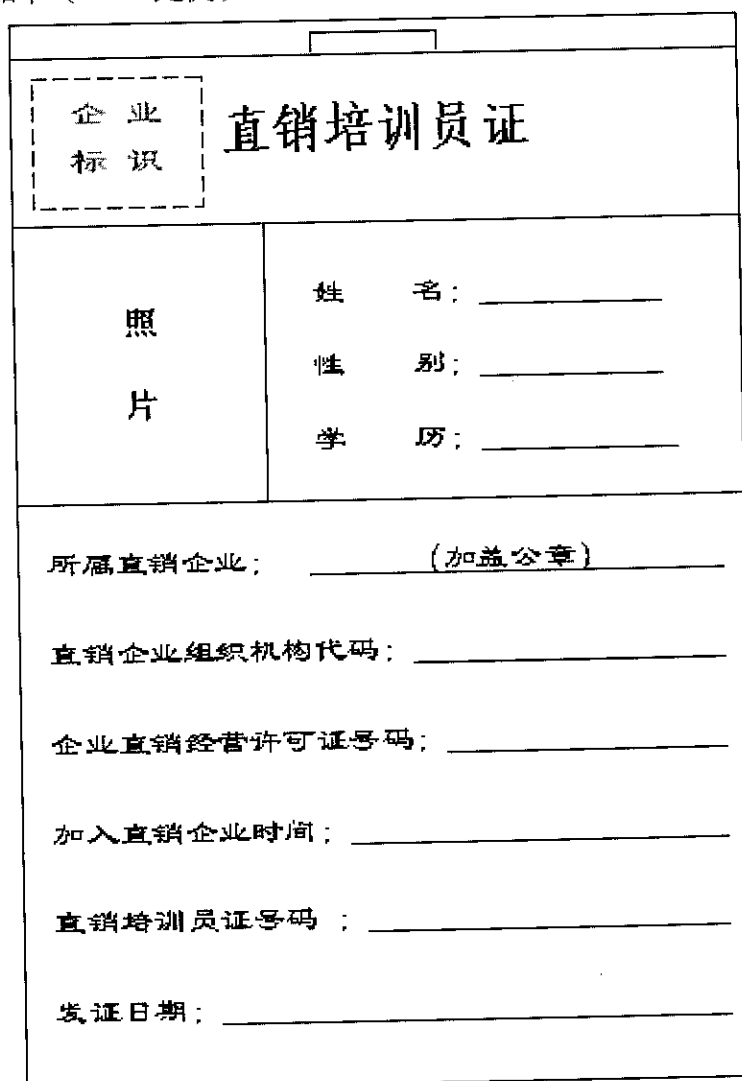 企 业
标 识
直销培训员证
照
片
姓 名:
性 别:
学 历:
所属直销企业: (加盖公章)
直销企业组织机构代码:
企业直销经营许可证号码:
加入直销企业时间:
直销培训员证号码 :
发证日期: